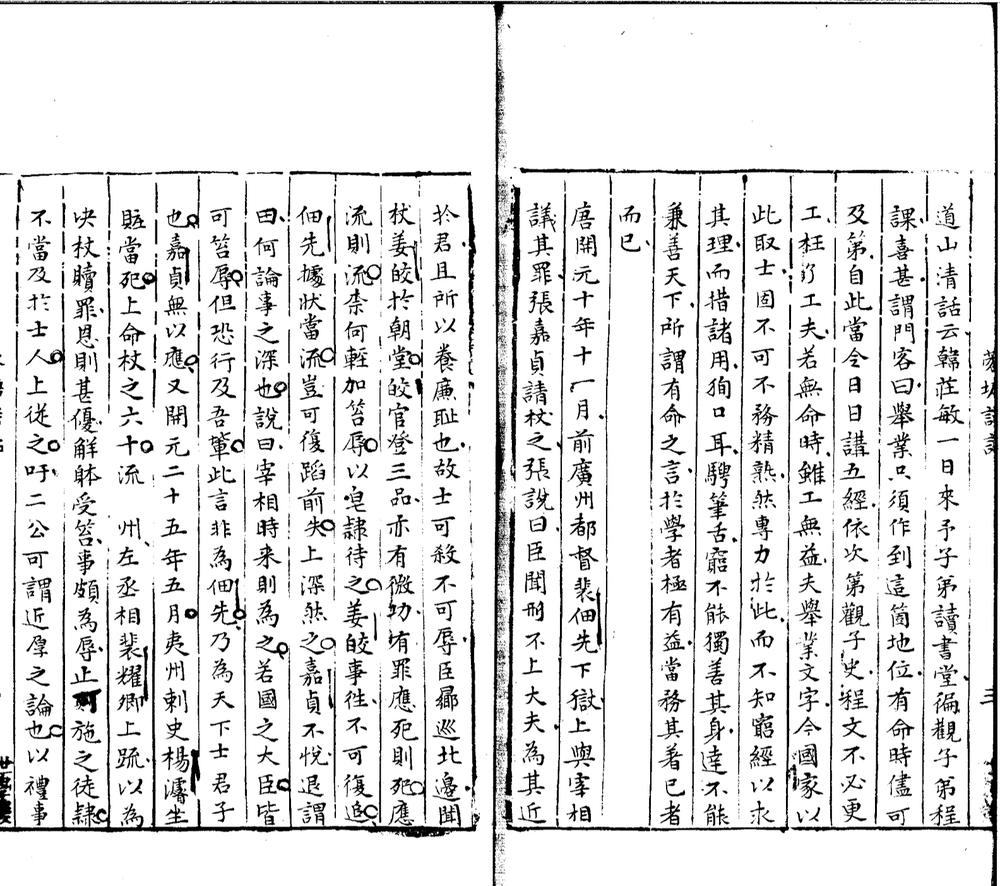 道山清話云韓莊敏一日來予子弟讀書堂徧觀子弟程
課喜甚謂門客曰舉業只須作到這箇地位有命時儘可
及第自此當令日日講五經依次第觀子史程文不必更
工枉了工夫若無命時雖工無益夫舉業文字今國家以
此取士固不可不務精熟然專力於此而不知窮經以求
其理而措諸用狥口耳騁筆舌窮不能獨善其身達不能
兼善天下所謂有命之言於學者極有益當務其著已者
而已
唐開元十年十一月前廣州都督裴伷先下獄上與宰相
議其罪張嘉貞請杖之張說曰臣聞刑不上大夫為其近
於君且所以養廉耻也故士可殺不可辱臣鄉巡北邊聞
杖姜皎於朝堂皎官登三品亦有微功有罪應死則死應
流則流柰何輕加笞辱以皂隸待之姜皎事徃不可復追
伷先據狀當流豈可復蹈前失上深然之嘉貞不悅退謂
曰何論事之深也說曰宰相時来則為之若國之大臣皆
可笞辱但恐行及吾軰此言非為伷先乃為天下士君子
也嘉貞無以應又開元二十五年五月夷州刺史楊濬坐
贓當死上命杖之六十流 州左丞相裴耀卿上䟽以為
决杖贖罪恩則甚優解躰受笞事頗為辱止可施之徒隸
不當及於士人上從之吁二公可謂近厚之論也以禮事